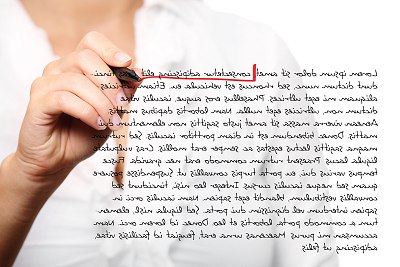 Lorem ipsum dolor sit amet, consectetur adipiscing elit. tinci-
dunt dictum nunc, sed rhoncus est vehicula eu. Etiam ultricies
aliquam mi eget ultrices. Phasellus eros augue, iaculis vitae
dictum non, ultricies eu nullam. Nam lobortis dapibus
Aenean viverra massa sit amet justo sagittis non
mattis. Donec bibendum est in diam porttitor iaculis. Sed rutrum
magna sagittis lectus egestas ac semper erat mollis. Cras vulputate
ligula lacus. Praesent rutrum commodo nec gravida. Fusce
tempus varius dui, eu porta turpis convallis ut. Suspendisse posuere
quam sed neque iaculis cursus. Integer leo nisi, tincidunt sed
convallis vestibulum, blandit eget sapien. Nam iaculis orci in
sapien interdum vel dignissim dui porta. Sed ligula nisl, elemen-
tum a commodo porta, lobortis et leo. Donec id lorem orci. Nam
accumsan mi purus. Maecenas urna erat, feugiat id facilisis vitae,
adipiscing ut felis